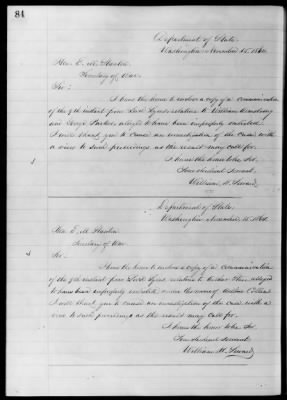 84
Department of State,
Washington November 15, 1864.
Hon. E. M. Stanton,
Secretary of War.
Sir:
I have the honor to enclose a copy of a communication
of the 9th instant from Lord Lyons relative to William Armstrong
and George Parker, alleged to have been improperly enlisted.
I will thank you to cause an investigation of the cases with
a view to such proceedings as the result may call for.
I have the honor to be, Sir,
Your obedient servant,
William H. Seward.
Department of State,
Washington November 15, 1864.
Hon. E. M. Stanton
Secretary of War
Sir:
I have the honor to enclose a copy of a communication
of the 9th instant from Lord Lyons relative to alleged
to have been improperly enlisted under the name of
I will thank you to cause an investigation of the case with a
view to such proceedings as the result may call for.
I have the honor to be, Sir,
Your obedient servant
William H. Seward.